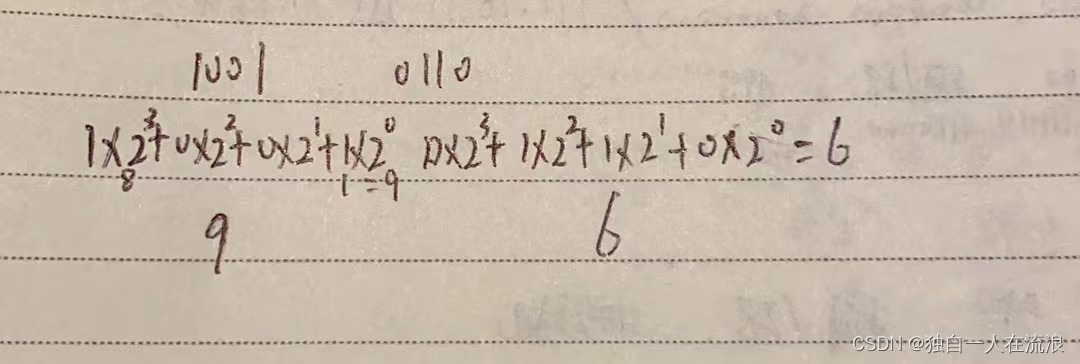 1001 0110
1×2³+0×2²+0×2¹+1×2⁰ 0×2³+1×2²+1×2¹+0×2⁰=6
8 1=9
9 6
CSDN @独自一人在流浪